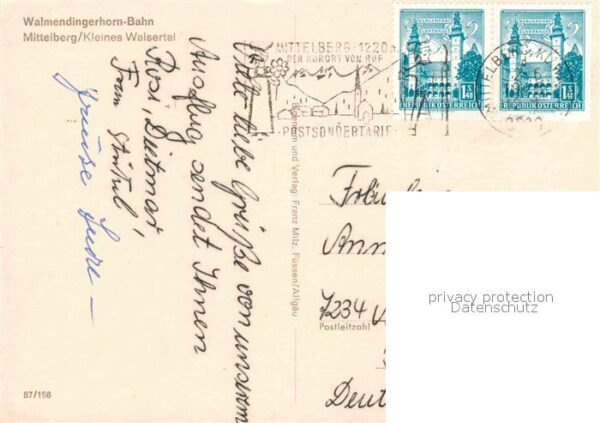 Walmendingerhorn-Bahn
Mittelberg/Kleines Walsertal
Viele liebe Grüße von unserem
Ausflug sendet Ihnen
Rosi, Dietmar
Frau
MITTELBERG · 1220
DER KURORT VON RUF
POSTSONDERTARIF
REPUBLIK ÖSTERREICH
REPUBLIK ÖSTERREICH
und Verlag: Franz Milz, Füssen/Allgäu
Ann
7234
Postleitzahl
Deut
privacy protection
Datenschutz
87/198